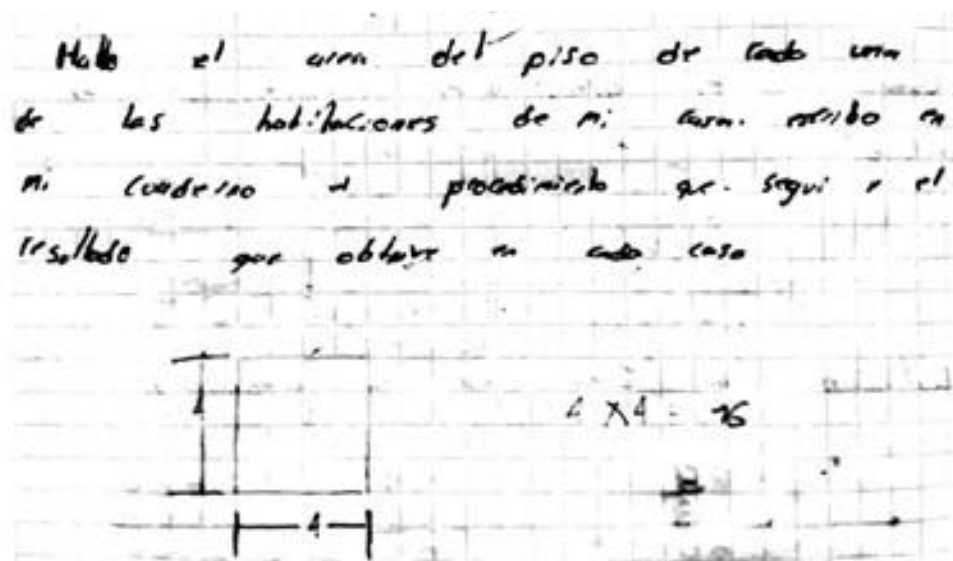 Hallo el area del piso de cada una
de las habitaciones de mi casa. escribo en
mi cuaderno el procedimiento que segui y el
resultado que obtuve en cada caso
4 4 X 4 = 16
4